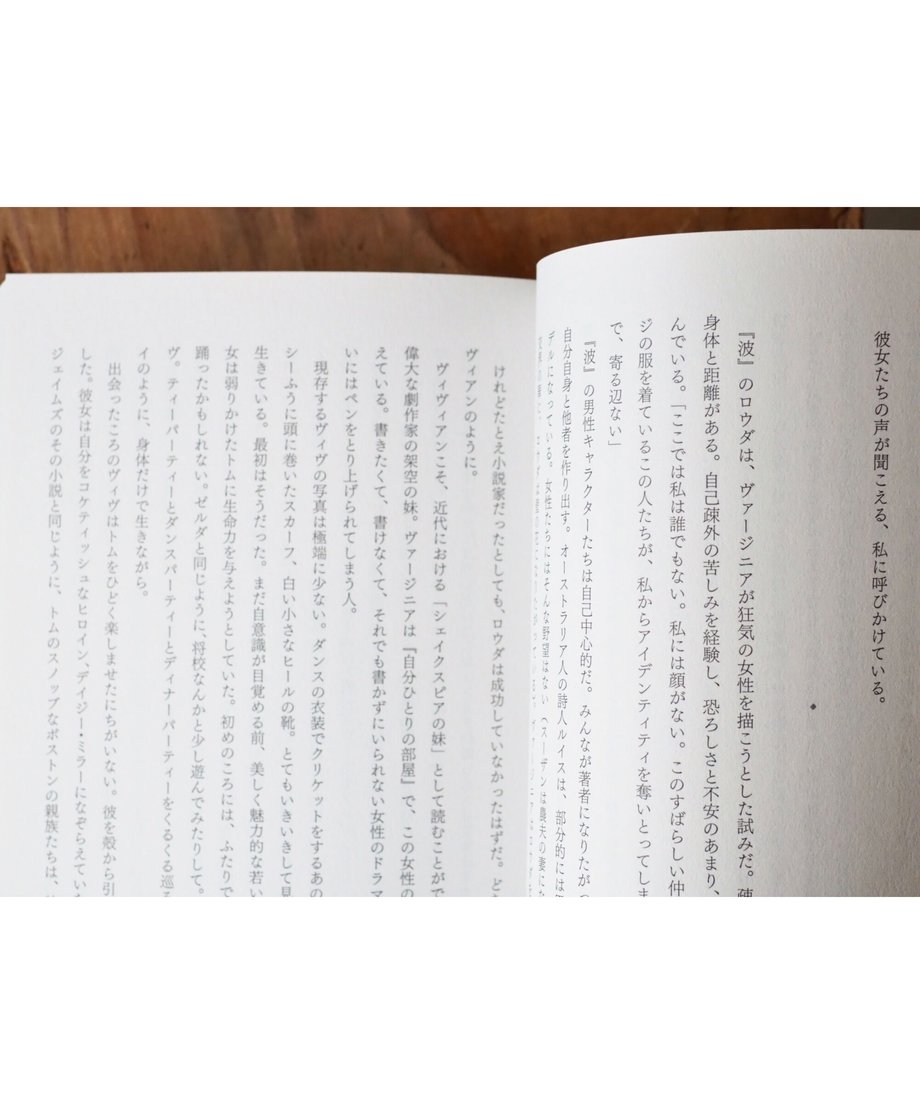 彼女たちの声が聞こえる、私に呼びかけている。
◆
『波』のロウダは、ヴァージニアが狂気の女性を描こうとした試みだ。疎
身体と距離がある。自己疎外の苦しみを経験し、恐ろしさと不安のあまり、
んでいる。「ここでは私は誰でもない。私には顔がない。このすばらしい仲
ジの服を着ているこの人たちが、私からアイデンティティを奪いとってしま
で、寄る辺ない」
『波』の男性キャラクターたちは自己中心的だ。みんなが著者になりたがっ
自分自身と他者を作り出す。オーストラリア人の詩人ルイスは、部分的には
デルになっている。女性たちにはそんな野望はない（スーザンは農夫の妻にな
けれどたとえ小説家だったとしても、ロウダは成功していなかったはずだ。ど
ヴィアンのように。
ヴィヴィアンこそ、近代における「シェイクスピアの妹」として読むことがで
偉大な劇作家の架空の妹。ヴァージニアは『自分ひとりの部屋』で、この女性の
えている。書きたくて、書けなくて、それでも書かずにいられない女性のドラマ
いにはペンをとり上げられてしまう人。
現存するヴィヴの写真は極端に少ない。ダンスの衣装でクリケットをするあの
シーふうに頭に巻いたスカーフ、白い小さなヒールの靴。とてもいきいきして見
生きている。最初はそうだった。まだ自意識が目覚める前、美しく魅力的な若い
女は弱りかけたトムに生命力を与えようとしていた。初めのころには、ふたりで
踊ったかもしれない。ゼルダと同じように、将校なんかと少し遊んでみたりして。
ヴ。ティーパーティーとダンスパーティーとディナーパーティーをくるくる巡る
イのように、身体だけで生きながら。
出会ったころのヴィヴはトムをひどく楽しませたにちがいない。彼を殻から引
した。彼女は自分をコケティッシュなヒロイン、デイジー・ミラーになぞらえてい
ジェイムズのその小説と同じように、トムのスノッブなボストンの親族たちは、